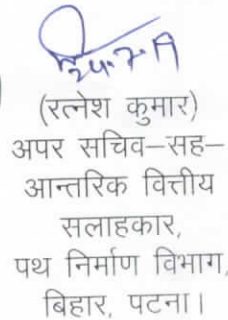 (रत्नेश कुमार)
अपर सचिव–सह–
आन्तरिक वित्तीय
सलाहकार,
पथ निर्माण विभाग,
बिहार, पटना।